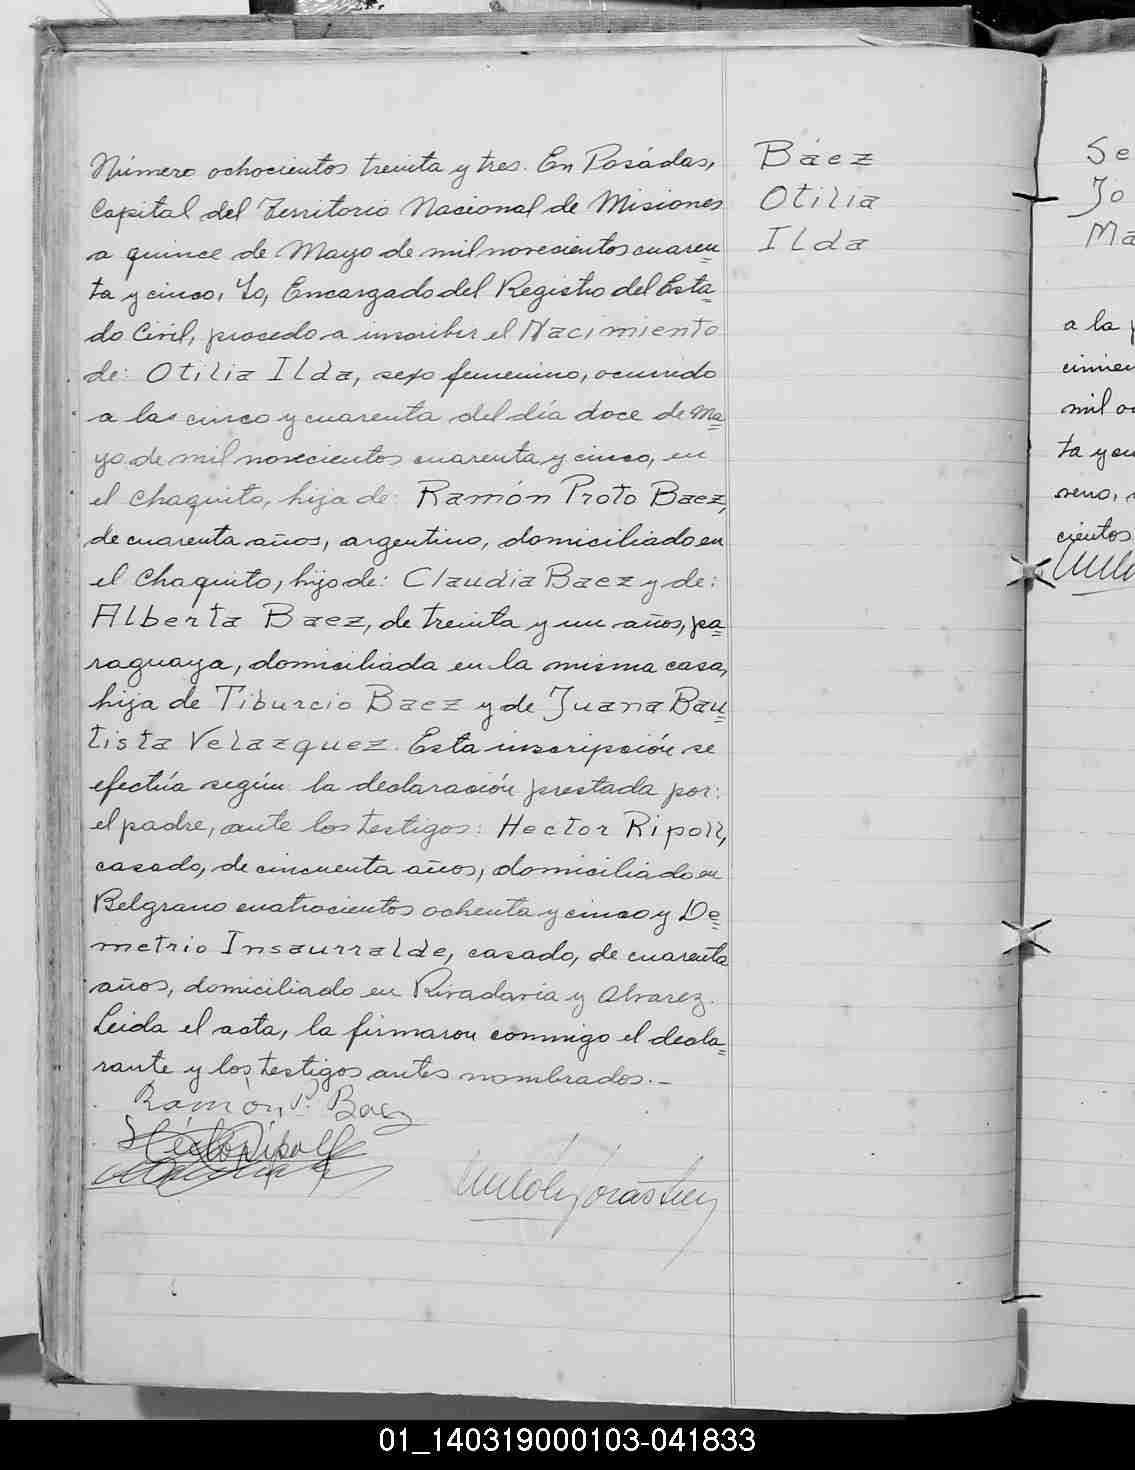 Número ochocientos treinta y tres. En Posádas,
Capital del Territorio Nacional de Misiones
a quince de Mayo de mil novecientos cuaren=
ta y cinco, Yo, Encargado del Registro del Esta=
do Civil, procedo a inscribir el Nacimiento
de: Otilia Ilda, sexo femenino, ocurrido
a las cinco y cuarenta del día doce de Ma=
yo de mil novecientos cuarenta y cinco, en
el Chaquito, hija de: Ramón Proto Baez,
de cuarenta años, argentino, domiciliado en
el Chaquito, hijo de: Claudia Baez y de:
Alberta Baez, de treinta y un años, pa=
raguaya, domiciliada en la misma casa,
hija de Tiburcio Baez y de Juana Bau=
tista Velazquez. Esta inscripción se
efectúa según la declaración prestada por:
el padre, ante los testigos: Hector Ripoll,
casado, de cincuenta años, domiciliado en
Belgrano cuatrocientos ochenta y cinco y De=
metrio Insaurralde, casado, de cuarenta
años, domiciliado en Rivadavia y Alvarez.
Leida el acta, la firmaron conmigo el decla=
rante y los testigos antes nombrados.-
Ramón, P. Baez
Héctor Ripoll
Báez
Otilia
Ilda
Se
Jo
Ma
a la
cimien
mil oc
ta y cu
reno,
cientos
01_140319000103-041833